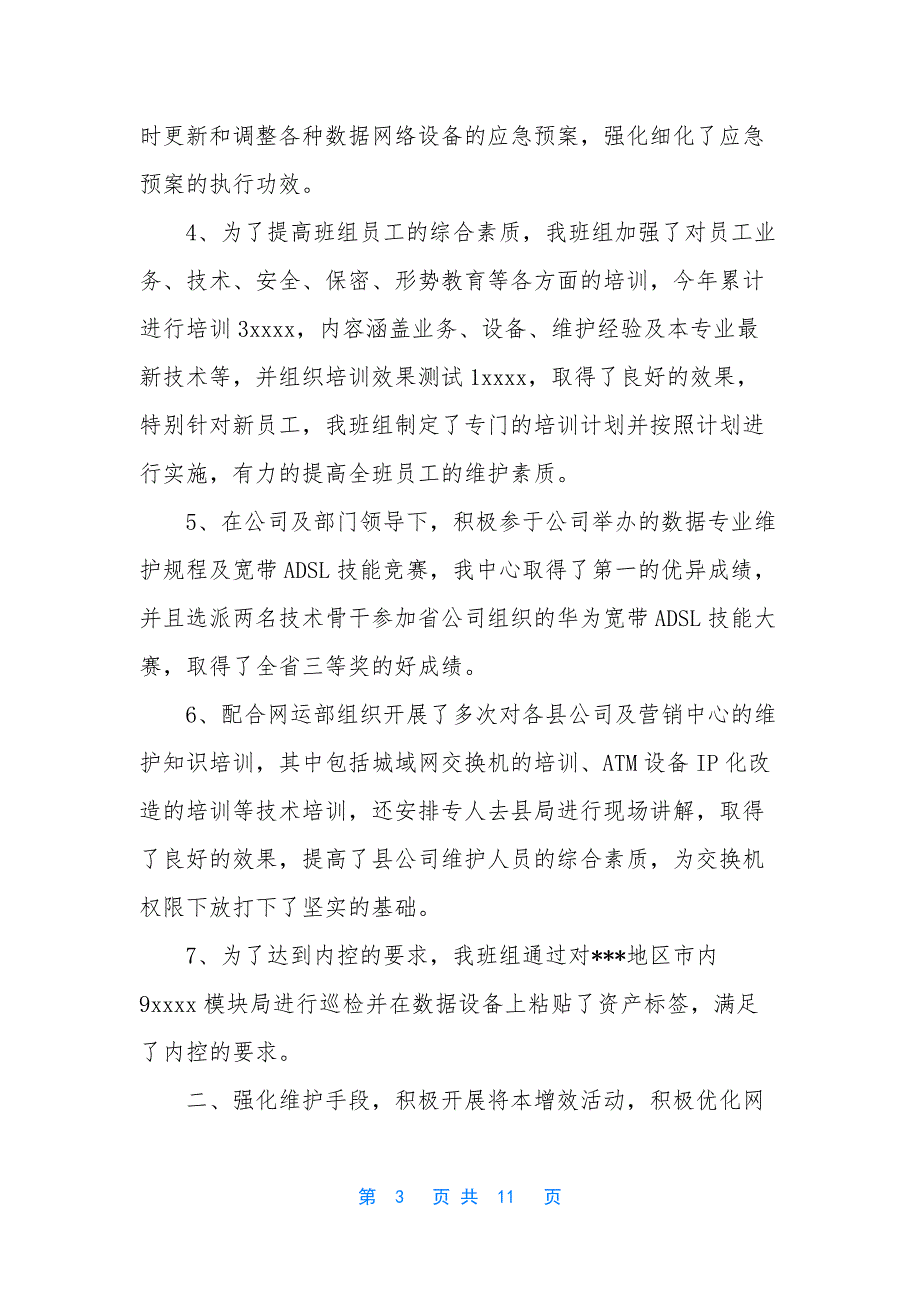 时更新和调整各种数据网络设备的应急预案，强化细化了应急
预案的执行功效。
4、为了提高班组员工的综合素质，我班组加强了对员工业
务、技术、安全、保密、形势教育等各方面的培训，今年累计
进行培训 3xxxx，内容涵盖业务、设备、维护经验及本专业最
新技术等，并组织培训效果测试 1xxxx，取得了良好的效果，
特别针对新员工，我班组制定了专门的培训计划并按照计划进
行实施，有力的提高全班员工的维护素质。
5、在公司及部门领导下，积极参于公司举办的数据专业维
护规程及宽带 ADSL 技能竞赛，我中心取得了第一的优异成绩，
并且选派两名技术骨干参加省公司组织的华为宽带 ADSL 技能大
赛，取得了全省三等奖的好成绩。
6、配合网运部组织开展了多次对各县公司及营销中心的维
护知识培训，其中包括城域网交换机的培训、ATM 设备 IP 化改
造的培训等技术培训，还安排专人去县局进行现场讲解，取得
了良好的效果，提高了县公司维护人员的综合素质，为交换机
权限下放打下了坚实的基础。
7、为了达到内控的要求，我班组通过对***地区市内
9xxxx 模块局进行巡检并在数据设备上粘贴了资产标签，满足
了内控的要求。
二、强化维护手段，积极开展将本增效活动，积极优化网
第 3 页 共 11 页